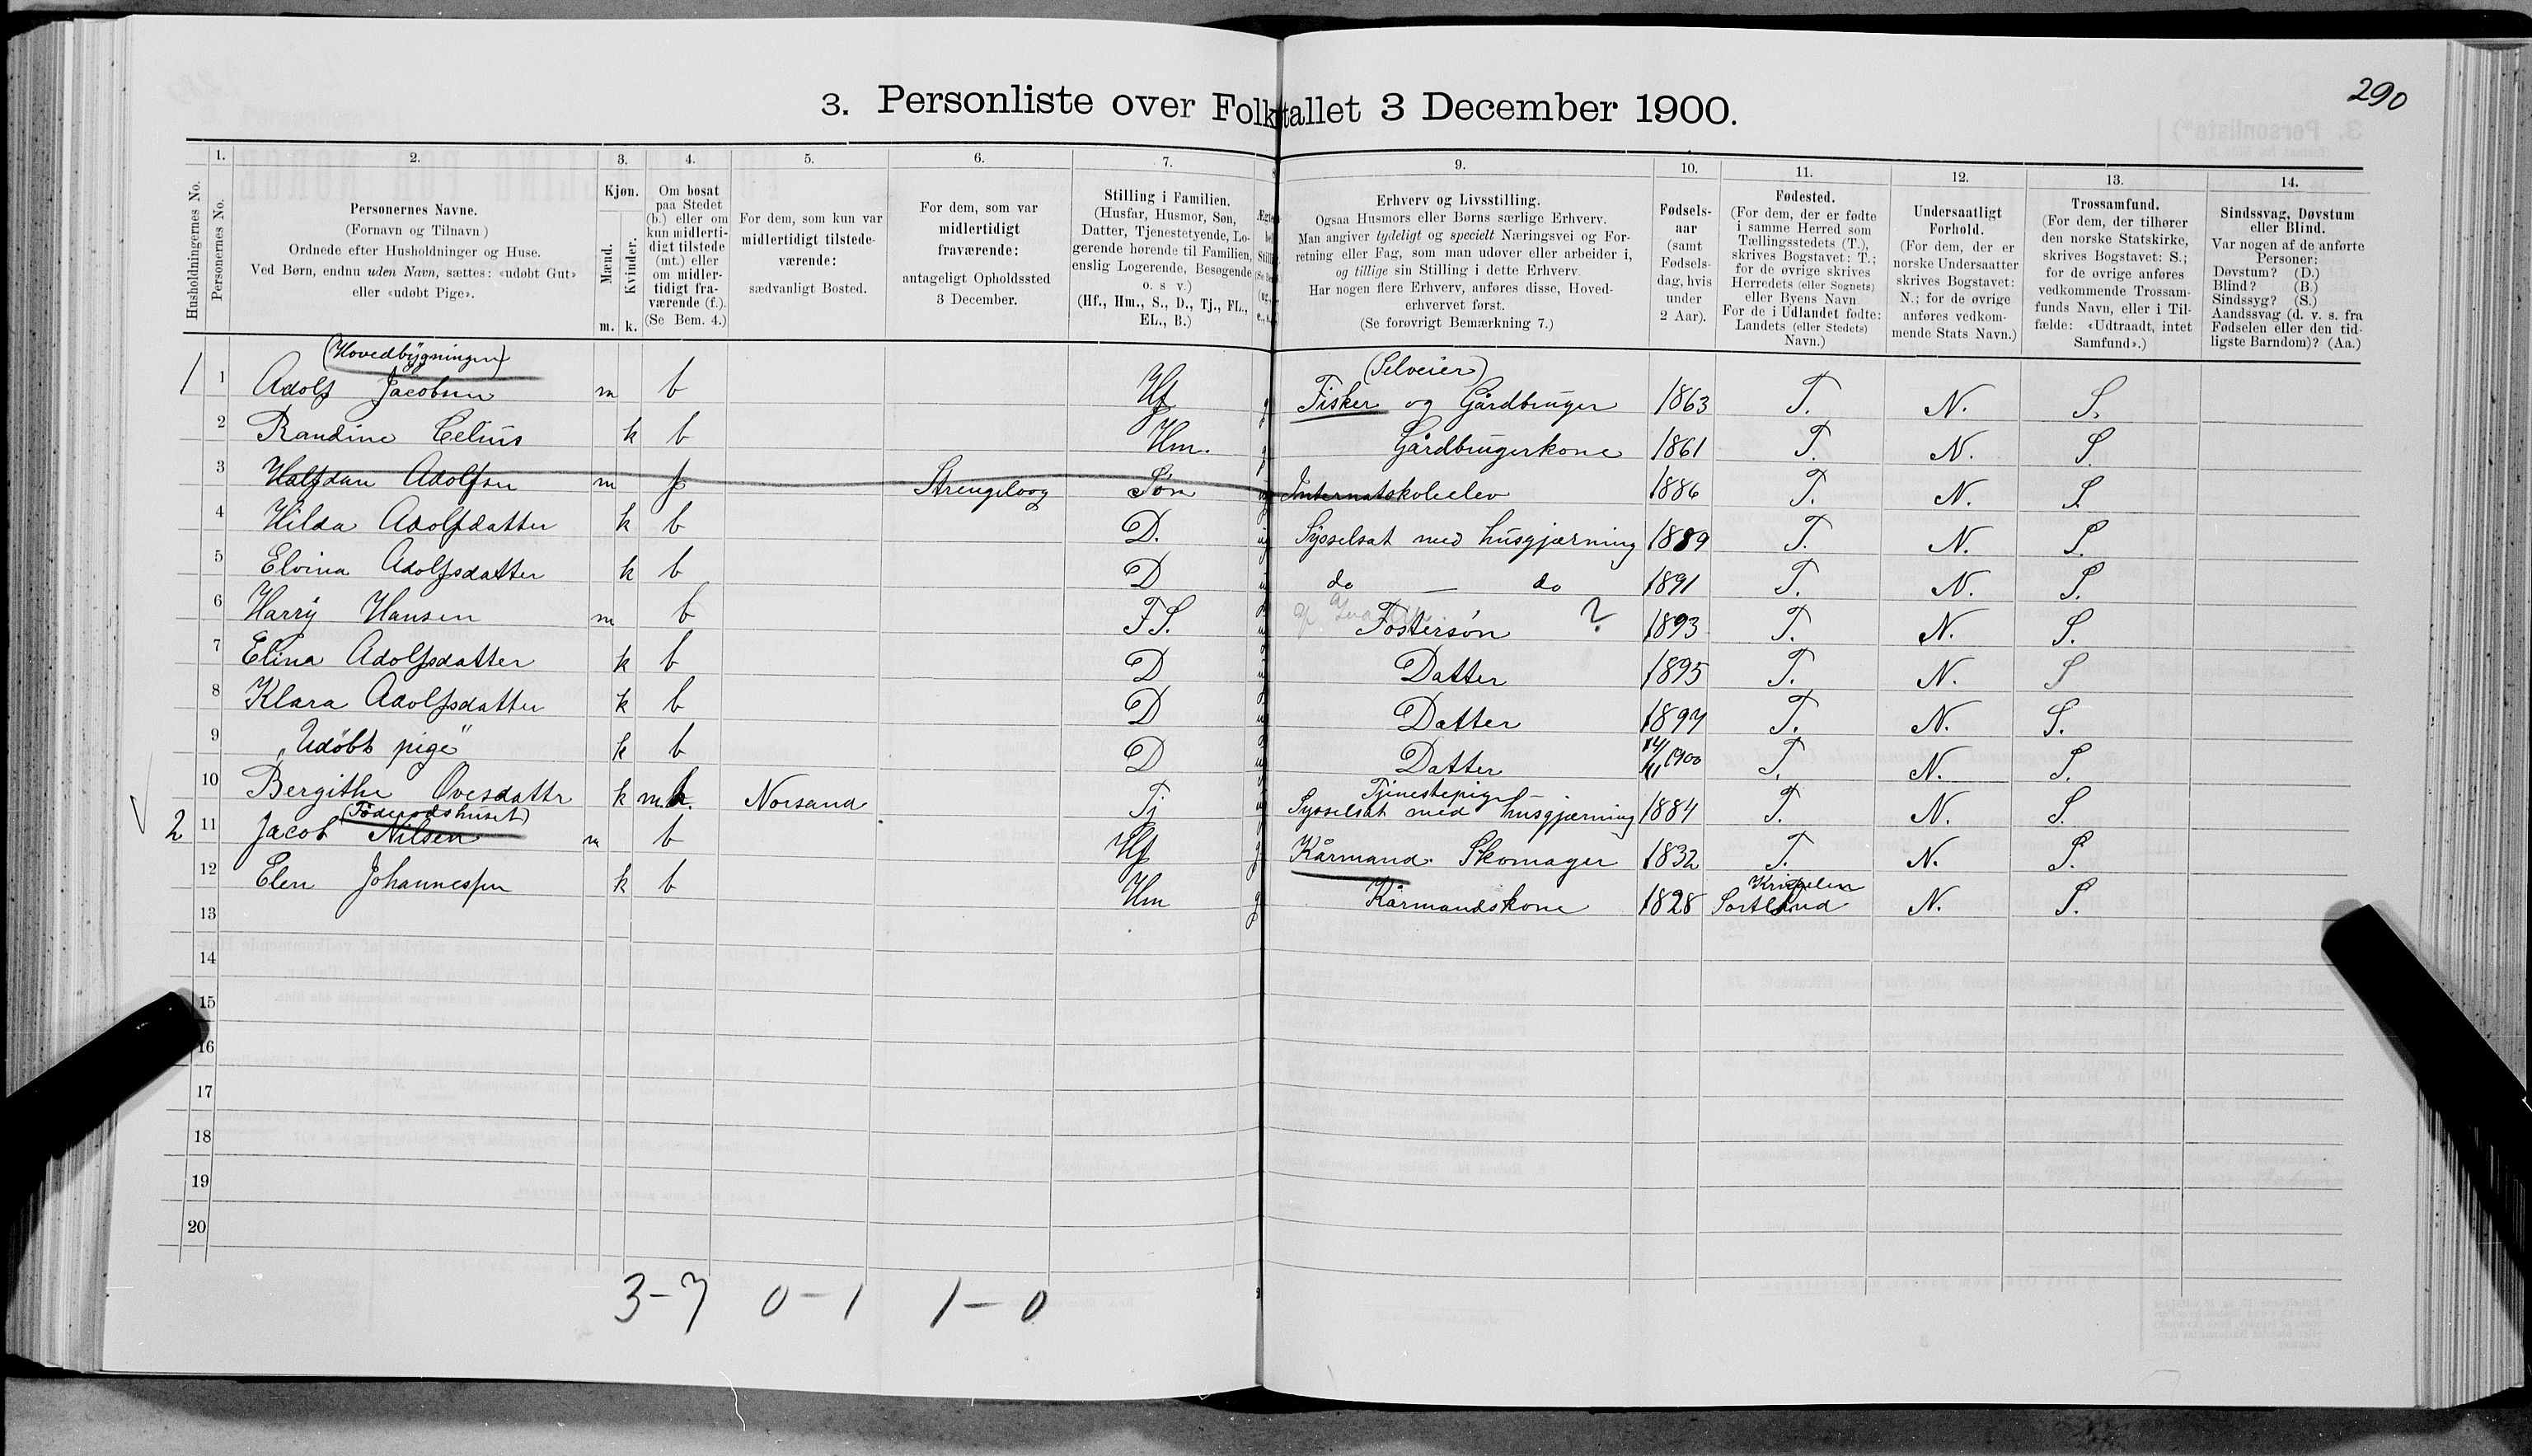 290
3. Personliste over Folketallet 3 December 1900.
1. 2. 3. 4. 5. 6. 7. 9. 10. 11. 12. 13. 14.
Husholdningernes No.
Personernes No.
Personernes Navne.
(Fornavn og Tilnavn)
Ordnede efter Husholdninger og Huse.
Ved Børn, endnu uden Navn, sættes: «udøbt Gut»
eller «udøbt Pige».
Kjøn.
Mænd.
Kvinder.
m. k.
Om bosat
paa Stedet
(b.) eller om
kun midlerti-
digt tilstede
(mt.) eller
om midler-
tidigt fra-
værende (f.).
(Se Bem. 4.)
For dem, som kun var
midlertidigt tilstede-
værende:
sædvanligt Bosted.
For dem, som var
midlertidigt
fraværende:
antageligt Opholdssted
3 December.
Stilling i Familien.
(Husfar, Husmor, Søn,
Datter, Tjenestetyende, Lo-
gerende hørende til Familien,
enslig Logerende, Besøgende
o. s v.)
(Hf., Hm., S., D., Tj., FL.,
EL., B.)
Erhverv og Livsstilling.
Ogsaa Husmors eller Børns særlige Erhverv.
Man angiver tydeligt og specielt Næringsvei og For-
retning eller Fag, som man udøver eller arbeider i,
og tillige sin Stilling i dette Erhverv.
Har nogen flere Erhverv, anføres disse, Hoved-
erhvervet først.
(Se forøvrigt Bemærkning 7.)
Fødsels-
aar
(samt
Fødsels-
dag, hvis
under
2 Aar).
Fødested.
(For dem, der er fødte
i samme Herred som
Tællingsstedets (T.),
skrives Bogstavet: T.;
for de øvrige skrives
Herredets (eller Sognets)
eller Byens Navn.
For de i Udlandet fødte:
Landets (eller Stedets)
Navn.)
Undersaatligt
Forhold.
(For dem, der er
norske Undersaatter
skrives Bogstavet:
N.; for de øvrige
anføres vedkom-
mende Stats Navn.)
Trossamfund.
(For dem, der tilhører
den norske Statskirke,
skrives Bogstavet: S.;
for de øvrige anføres
vedkommende Trossam-
funds Navn, eller i Til-
fælde: «Udtraadt, intet
Samfund».)
Sindssvag, Døvstum
eller Blind.
Var nogen af de anførte
Personer:
Døvstum? (D.)
Blind? (B.)
Sindssyg? (S.)
Aandssvag (d. v. s. fra
Fødselen eller den tid-
ligste Barndom)? (Aa.)
(Hovedbygningen) (Selveier)
1 1 Adolf Jacobsen m b Hf g Fisker og Gårdbruger 1863 T. N. S.
2 Randine Celius k b Hm. g Gårdbrugerkone 1861 T. N. S.
3 Halfdan Adolfsen m f Strengelvog Søn Internatskoleelev 1886 T. N. S.
4 Hilda Adolfdatter k b D. Sysselsat med husgjærning 1889 T. N. S.
5 Elvina Adolfsdatter k b D do — do 1891 T. N. S.
6 Harry Hansen m b FS. Fostersøn ? 1893 T. N. S.
7 Elina Adolfsdatter k b D Datter 1895 T. N. S
8 Klara Adolfsdatter k b D Datter 1897 T. N. S.
9 „Udøbt pige" k b D Datter 14/11 1900 T. N. S.
Tjenestepige
10 Bergithe Ovesdattr k mt. Norsand Tj Sysselsat med husgjærning 1884 T. N. S.
(Föderådshuset)
2 11 Jacob Nilsen m b Hf g Kårmand. Skomager 1832 T. N. S.
12 Elen Johannesen k b Hm g Kårmandskone 1828 Sortland N. S.
13
14
15
16
17
18
19
20
3-7 0-1 1-0